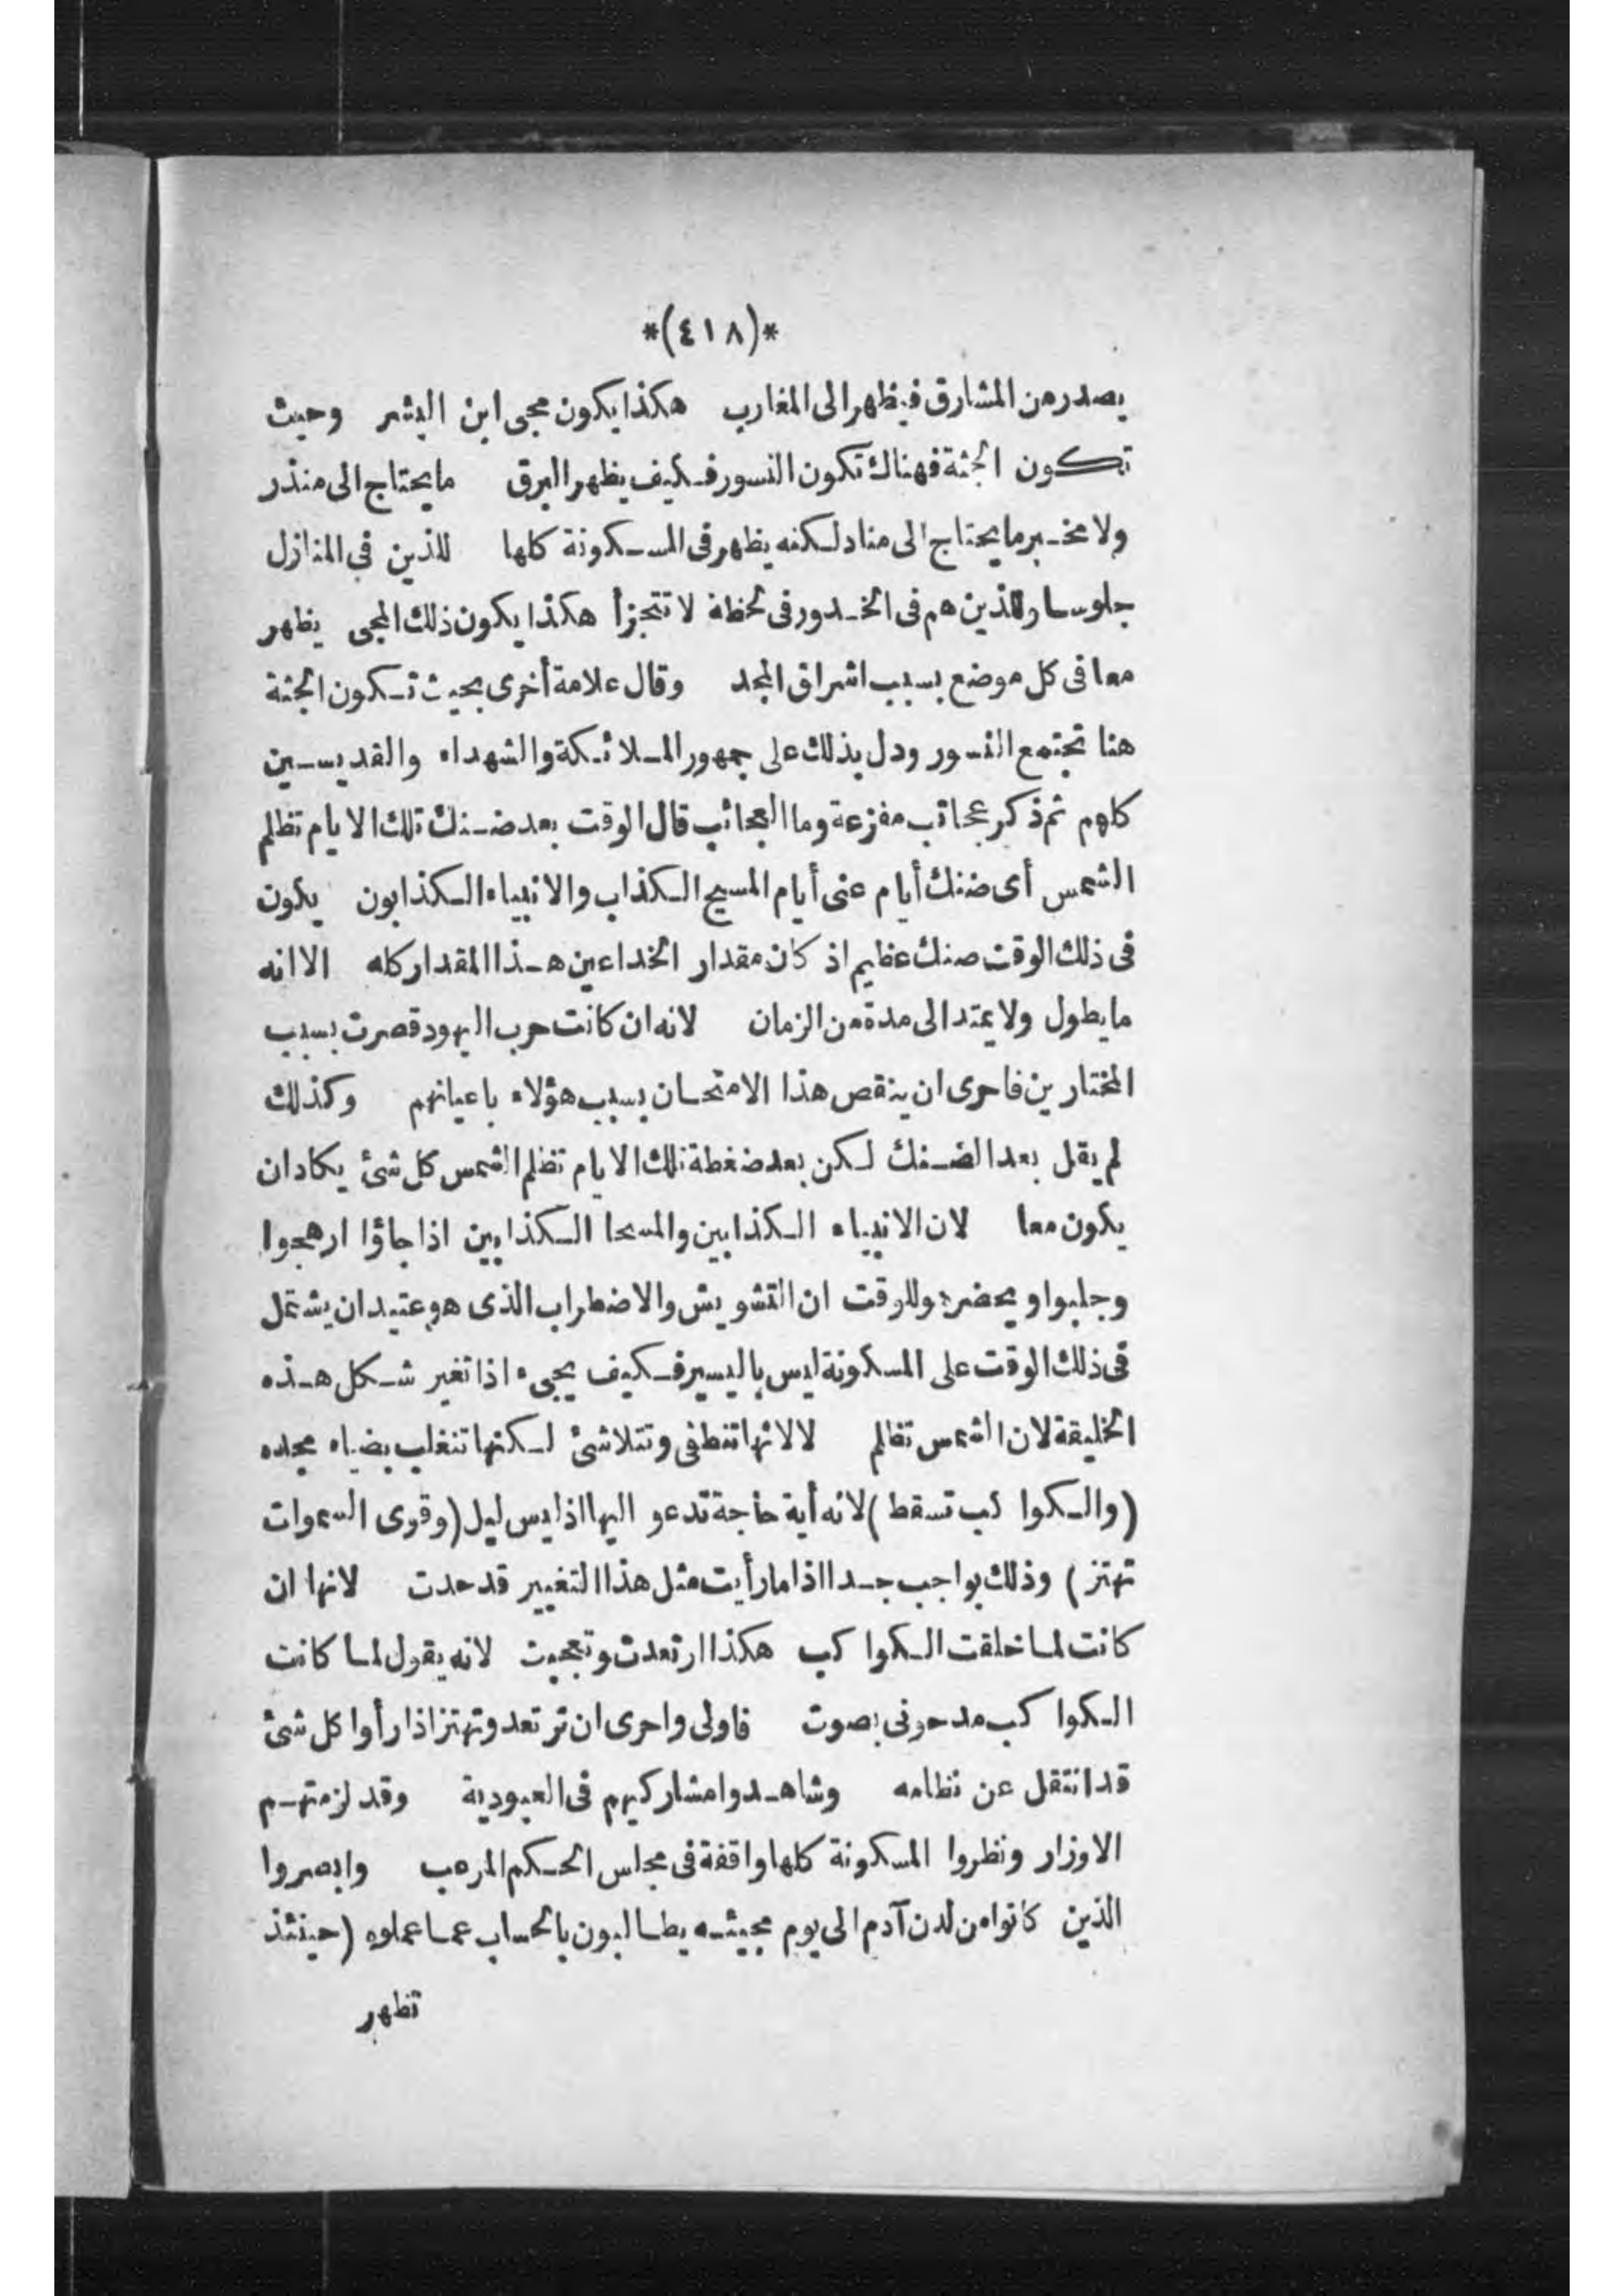 *(٤١٨)*
يصدر من المشارق فيظهر الى المغارب هكذا يكون مجى ابن البشر وحيث
تكون الجثة فهناك تكون النسور فكيف يظهر البرق ما يحتاج الى منذر
ولا مخبر ما يحتاج الى مناد لكنه يظهر فى المسكونة كلها للذين فى المنازل
جلوسا وللذين هم فى الخدور فى لحظة لا تتجزأ هكذا يكون ذلك المجى يظهر
معا فى كل موضع بسبب اشراق المجد وقال علامة أخرى بحيث تكون الجثة
هنا تجتمع النسور ودل بذلك على جمهور الملائكة والشهداء والقديسين
كلهم ثم ذكر عجائب مفزعة وما العجائب قال الوقت بعد ضنك تلك الايام تظلم
الشمس أى ضنك أيام عنى أيام المسيح الكذاب والانبياء الكذابون يكون
فى ذلك الوقت صنك عظيم اذ كان مقدار الخداعين هذا المقدار كله الا انه
ما يطول ولا يمتد الى مدة من الزمان لانه ان كانت حرب اليهود قصرت بسبب
المختارين فاحرى ان ينقص هذا الامتحان بسبب هؤلاء باعيانهم وكذلك
لم يقل بعد الضنك لكن بعد ضغطة تلك الايام تظلم الشمس كل شئ يكاد ان
يكون معا لان الانبياء الكذابين والمسحا الكذابين اذا جاؤا ارهجوا
وجلبوا و يحضر وللوقت ان التشويش والاضطراب الذى هو عتيد ان يشتمل
فى ذلك الوقت على المسكونة ليس باليسير فكيف يجىء اذا تغير شكل هذه
الخليقة لان الشمس تظلم لا لانها تنطفى وتتلاشئ لكنها تنغلب بضياء مجده
(والكوا كب تسقط) لانه أية حاجة تدعو اليها اذ ليس ليل (وقوى السموات
تهتز) وذلك بواجب جدا اذا ما رأيت مثل هذا التغيير قد حدث لانها ان
كانت لما خلقت الكوا كب هكذا ارتعدت وتعجبت لانه يقول لما كانت
الكوا كب مدحونى بصوت فاولى واحرى ان ترتعد وتهتز اذا رأوا كل شئ
قد انتقل عن نظامه وشاهدوا مشاركيهم فى العبودية وقد لزمتهم
الاوزار ونظروا المسكونة كلها واقفة فى مجلس الحكم المرهب وابصروا
الذين كانوا من لدن آدم الى يوم مجيئه يطالبون بالحساب عما عملوه (حينئذ
تظهر